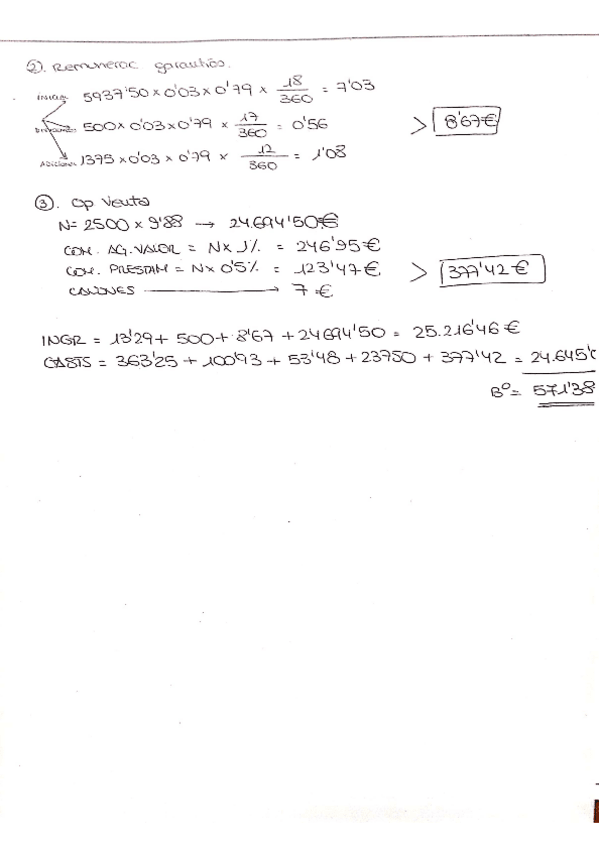 2). Remunerac garantías.
Inicial 5937'50 x 0'03 x 0'79 x 18/360 = 7'03
500 x 0'03 x 0'79 x 17/360 = 0'56 > 8'67€
Adiciones 1375 x 0'03 x 0'79 x 12/360 = 1'08
3). Op Venta
N = 2500 x 9'88 → 24.694'50€
COM. AG. VALOR = N x 1% = 246'95€
COM. PRESTAM = N x 0'5% = 123'47€ > 377'42€
CANONES → 7€
INGR = 13'29 + 500 + 8'67 + 24694'50 = 25.216'46€
GASTS = 363'25 + 100'93 + 53'48 + 23750 + 377'42 = 24.645'
Bº = 571'38